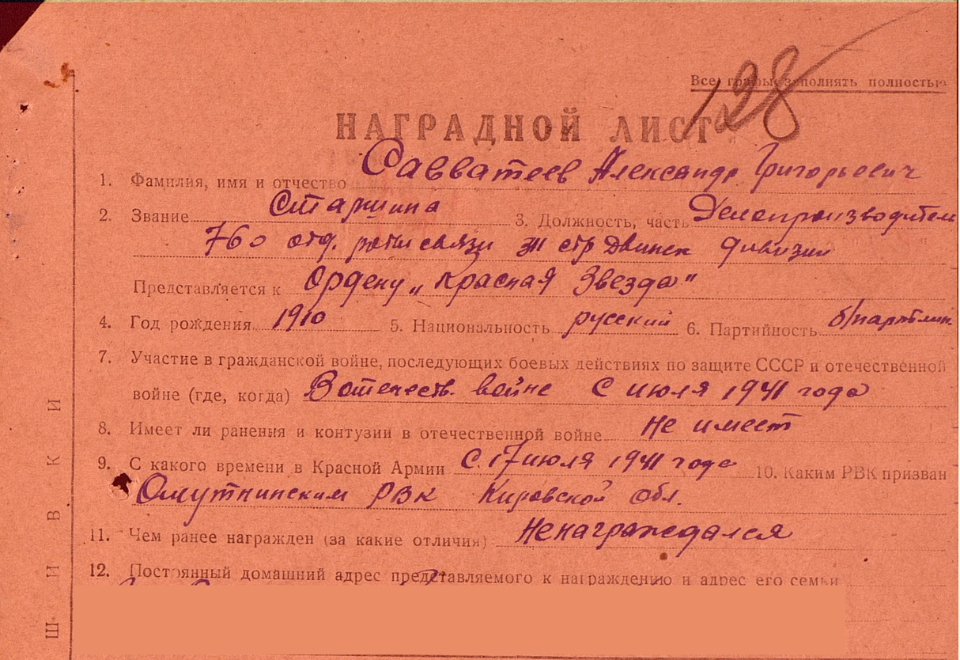 Все графы заполнять полностью
128
НАГРАДНОЙ ЛИСТ
1. Фамилия, имя и отчество Савватеев Александр Григорьевич
2. Звание Старшина 3. Должность, часть Делопроизводитель
760 отд. роты связи стр Двинск дивизии
Представляется к Ордену „Красная Звезда"
4. Год рождения 1910 5. Национальность русский 6. Партийность б/партийн
7. Участие в гражданской войне, последующих боевых действиях по защите СССР и отечественной
войне (где, когда) В отечеств. войне с июля 1941 года
8. Имеет ли ранения и контузии в отечественной войне Не имеет
9. С какого времени в Красной Армии с 17 июля 1941 года 10. Каким РВК призван
Омутнинским РВК Кировской обл.
11. Чем ранее награжден (за какие отличия) Ненаграждался
12. Постоянный домашний адрес представляемого к награждению и адрес его семьи
ШИВКИ